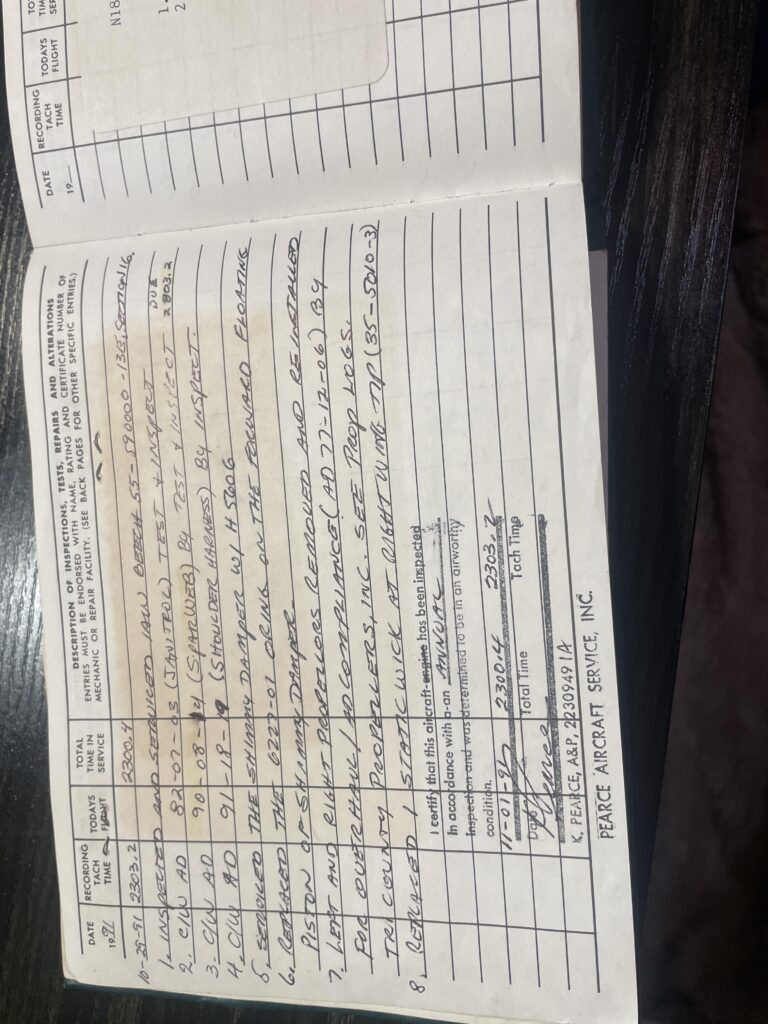 DATE
RECORDING TACH TIME
TODAYS FLIGHT
TOTAL TIME IN SERVICE
DESCRIPTION OF INSPECTIONS, TESTS, REPAIRS AND ALTERATIONS
ENTRIES MUST BE ENDORSED WITH NAME, RATING AND CERTIFICATE NUMBER OF
MECHANIC OR REPAIR FACILITY. (SEE BACK PAGES FOR OTHER SPECIFIC ENTRIES.)
1991
10-29-91 2303.2 2300.4
1. INSPECTED AND SERVICED IAW BEECH 55-590000-13B, SECTION 16
2. C/W AD 82-07-03 (JANITROL) TEST & INSPECT
3. C/W AD 90-08-14 (SPARWEB) BY TEST & INSPECT DUE 2803.2
4. C/W AD 91-18-19 (SHOULDER HARNESS) BY INSPECT.
5. SERVICED THE SHIMMY DAMPER W/ H5606
6. REPLACED THE 6227-01 ORING ON THE FORWARD FLOATING
PISTON OF SHIMMY DAMPER
7. LEFT AND RIGHT PROPELLORS REMOVED AND REINSTALLED
FOR OVERHAUL/AD COMPLIANCE (AD 77-12-06) BY
TRI COUNTY PROPELLERS, INC. SEE PROP LOGS.
8. REPLACED 1 STATIC WICK AT RIGHT WING TIP (35-5010-3)
I certify that this aircraft-engine has been inspected
in accordance with a-an ANNUAL
inspection and was determined to be in an airworthy
condition.
11-01-91 2300.4 2303.2
Date Total Time Tach Time
K. PEARCE, A&P, 2230949 IA
PEARCE AIRCRAFT SERVICE, INC.
DATE
RECORDING TACH TIME
TODAYS FLIGHT
19
N18
1.
2